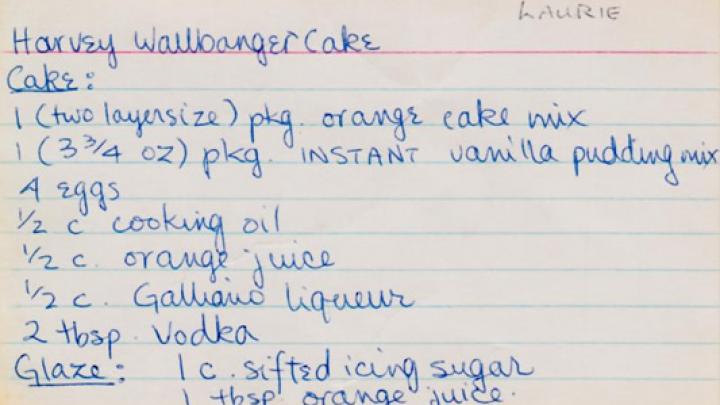 LAURIE
Harvey Wallbanger Cake
Cake:
1 (two layer size) pkg. orange cake mix
1 (3 3/4 oz) pkg. INSTANT vanilla pudding mix
4 eggs
1/2 c cooking oil
1/2 c. orange juice
1/2 c. Galliano liqueur
2 tbsp. Vodka
Glaze: 1 c. sifted icing sugar
1 tbsp orange juice.